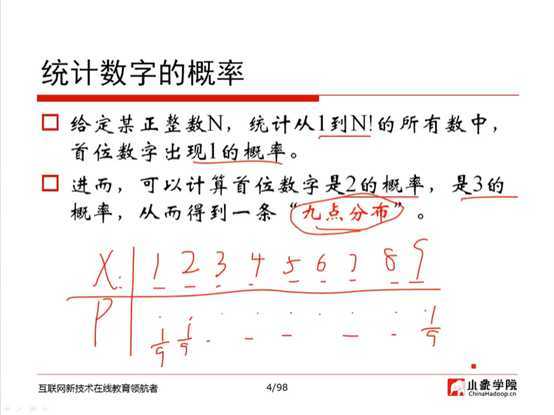 统计数字的概率
给定某正整数N，统计从1到N!的所有数中，
首位数字出现1的概率。
进而，可以计算首位数字是2的概率，是3的
概率，从而得到一条“九点分布”。
X: 1 2 3 4 5 6 7 8 9
P 1/9 1/9 1/9
互联网新技术在线教育领航者
4/98
小象学院
ChinaHadoop.cn